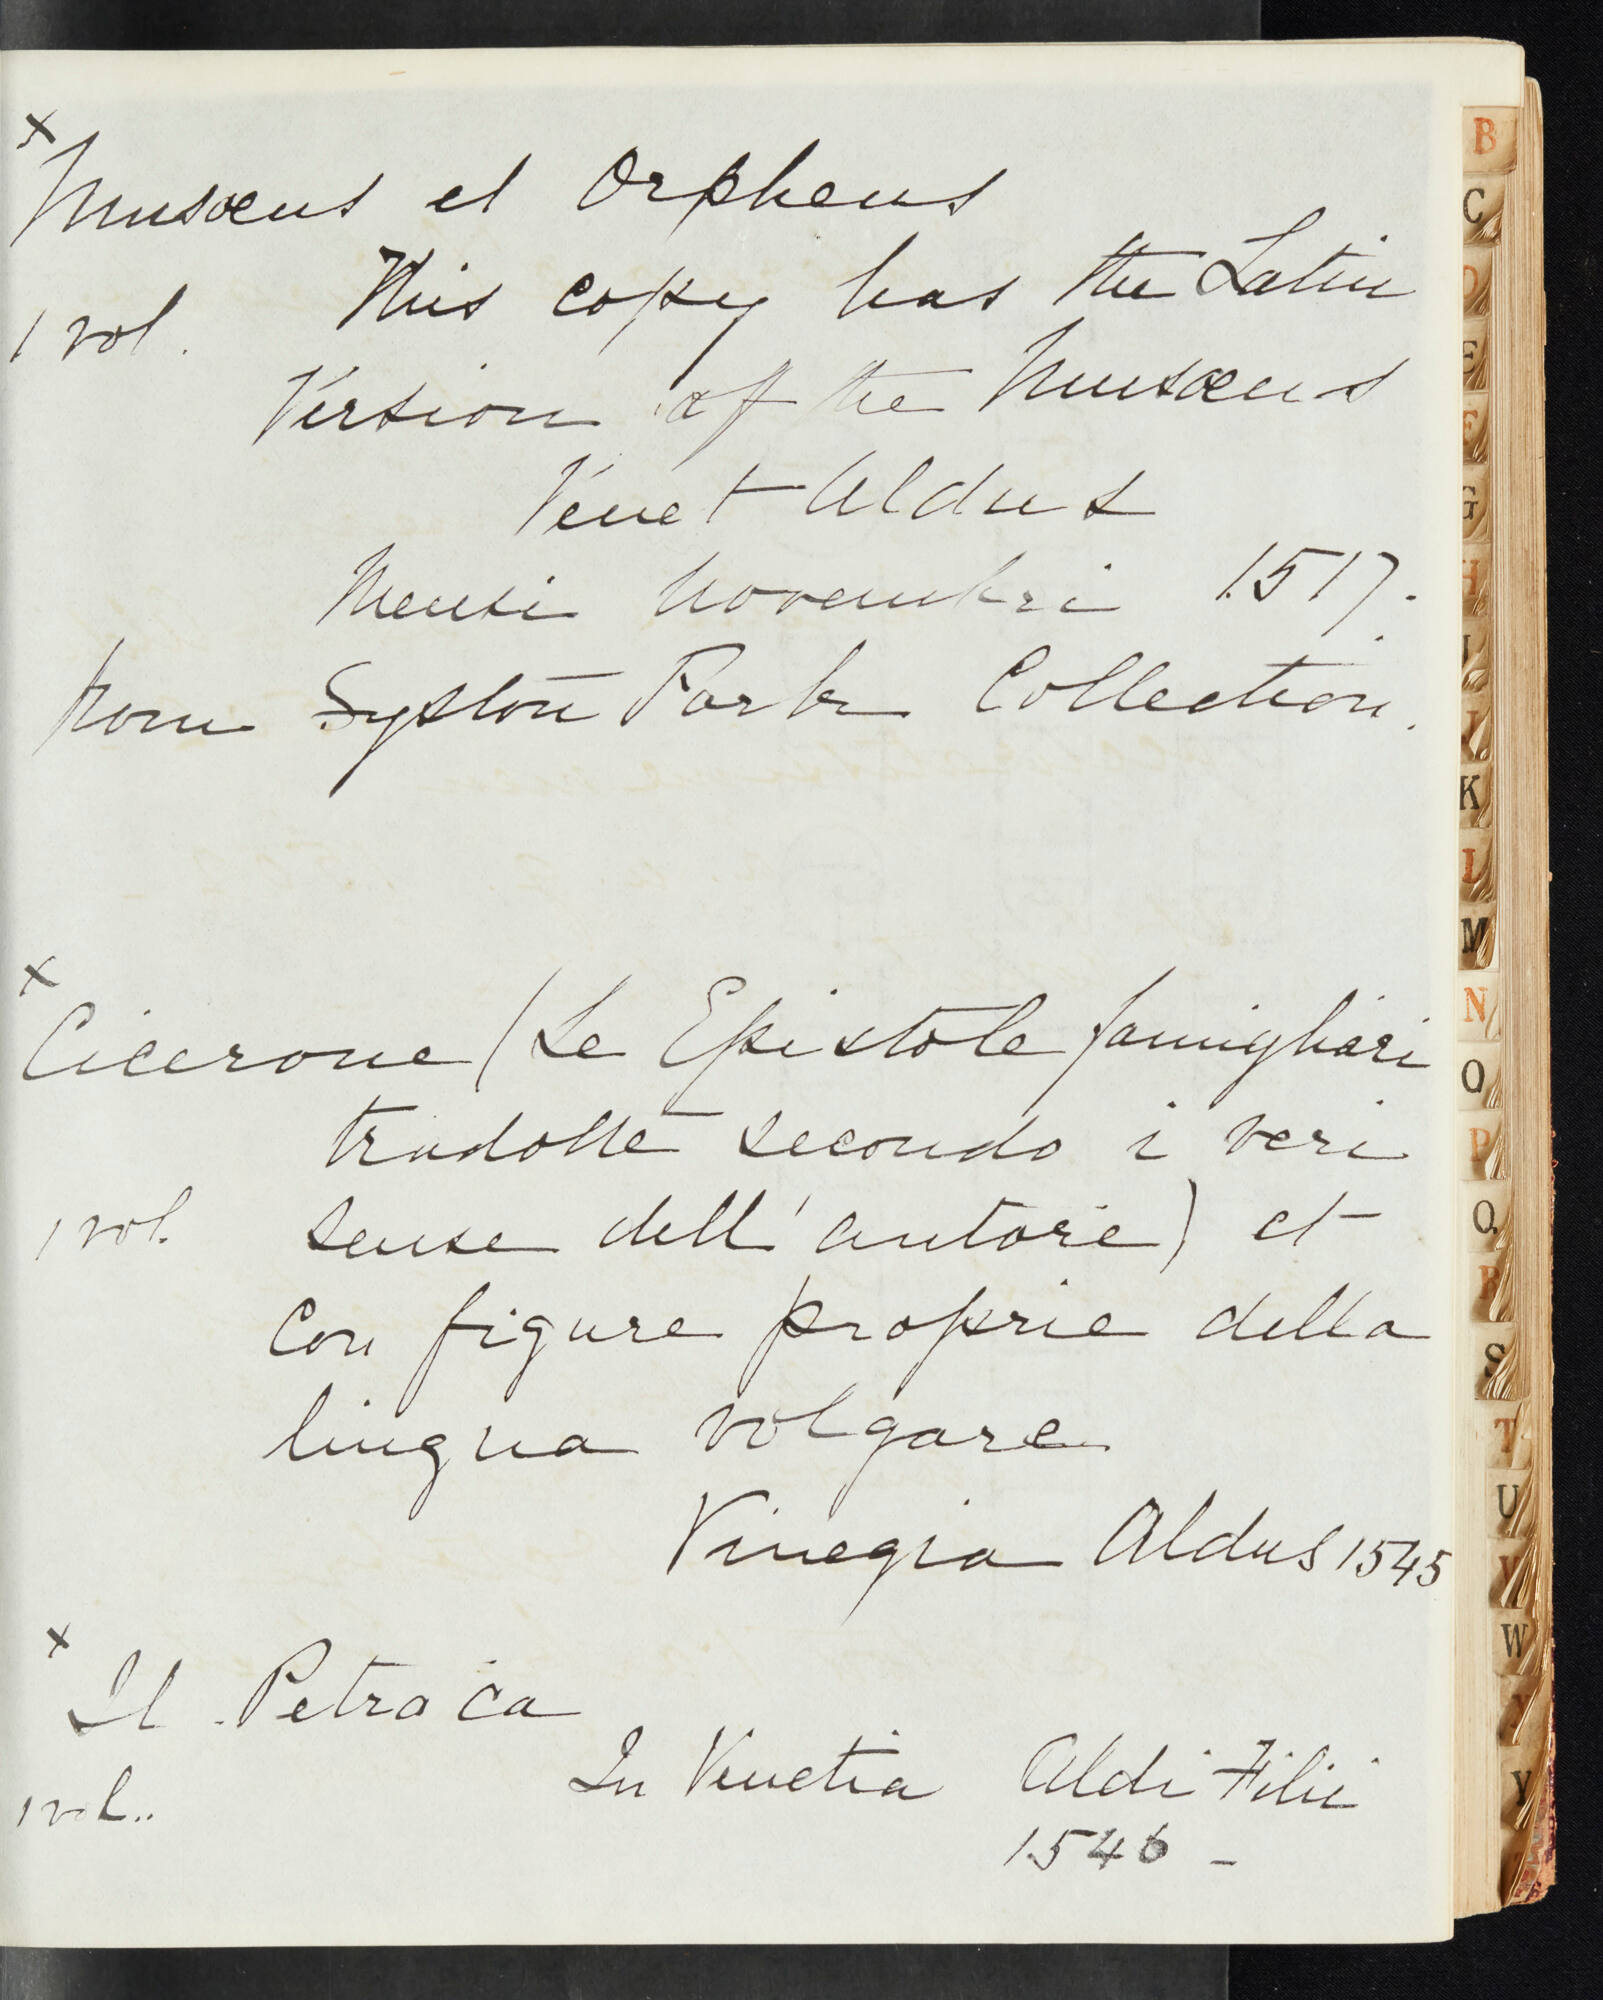 x
Musæus et Orpheus
This copy has the Latin
1 vol.
Version of the Musæus
Venet Aldus
Mensi Novembri 1517.
From Syston Park Collection.
x
Cicerone (Le Epistole famigliari
tradotte secondo i veri
1 vol.
sense dell' autore) et
con figure proprie della
lingua volgare
Vinegia Aldus 1545
x
Il Petraca
In Venetia Aldi Filii
1 vol..
1546 -
B
C
D
E
F
G
H
I
J
K
L
M
N
O
P
Q
R
S
T
U
V
W
X
Y